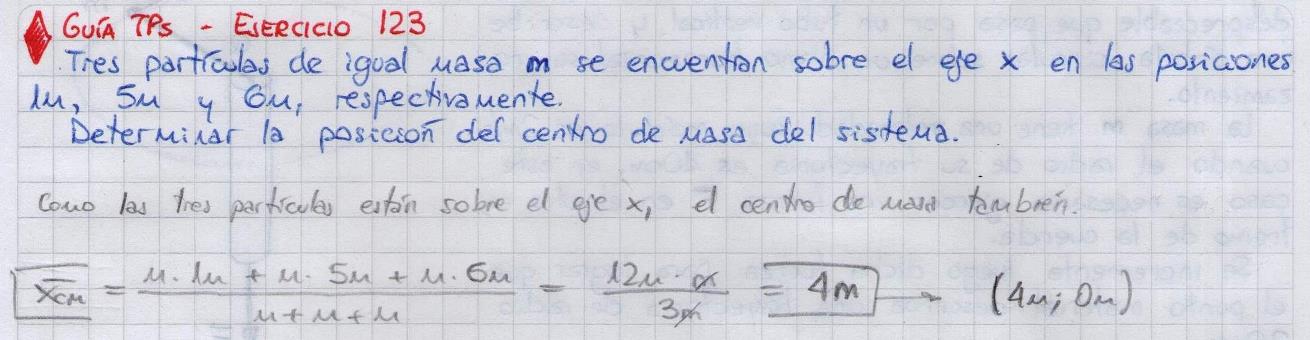 GUÍA TPs - EJERCICIO 123
Tres partículas de igual masa m se encuentran sobre el eje x en las posiciones
1m, 5m y 6m, respectivamente.
Determinar la posición del centro de masa del sistema.
Como las tres partículas están sobre el eje x, el centro de masa también.
x̄cm = (m·1m + m·5m + m·6m)/(m+m+m) = 12m m/3m = 4m → (4m; 0m)